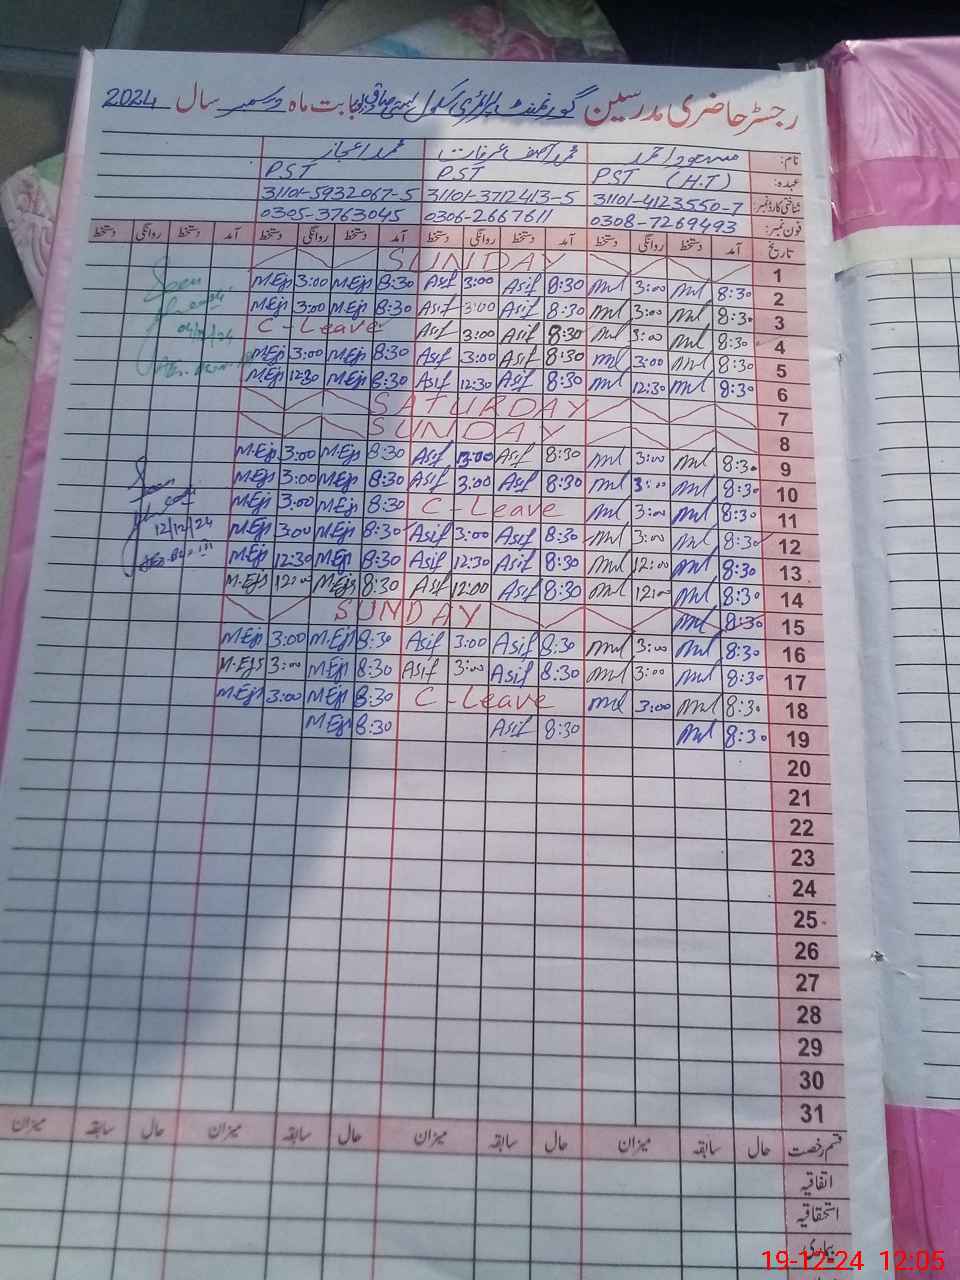 رجسٹر حاضری مدرسین گورنمنٹ پرائمری سکول بابت ماہ دسمبر سال 2024
نام: مسعود احمد محمد آصف عرفات محمد اعجاز
عہدہ: PST (H.T) PST PST
شناختی کارڈ نمبر: 31101-4123550-7 31101-3712413-5 31101-5932067-5
فون نمبر: 0308-7269493 0306-2667611 0305-3763045
تاریخ آمد دستخط روانگی دستخط آمد دستخط روانگی دستخط آمد دستخط روانگی دستخط آمد دستخط روانگی دستخط
1 SUNDAY
2 8:30 ml 3:00 ml 8:30 Asif 3:00 Asif 8:30 M.Ejs 3:00 M.Ejs
3 8:30 ml 3:00 ml 8:30 Asif 3:00 Asif 8:30 M.Ejs 3:00 M.Ejs
4 8:30 ml 3:00 ml 8:30 Asif 3:00 Asif C-Leave
5 8:30 ml 3:00 ml 8:30 Asif 3:00 Asif 8:30 M.Ejs 3:00 M.Ejs
6 8:30 ml 12:30 ml 8:30 Asif 12:30 Asif 8:30 M.Ejs 12:30 M.Ejs
7 SATURDAY
8 SUNDAY
9 8:30 ml 3:00 ml 8:30 Asif 3:00 Asif 8:30 M.Ejs 3:00 M.Ejs
10 8:30 ml 3:00 ml 8:30 Asif 3:00 Asif 8:30 M.Ejs 3:00 M.Ejs
11 8:30 ml 3:00 ml C-Leave 8:30 M.Ejs 3:00 M.Ejs
12 8:30 ml 3:00 ml 8:30 Asif 3:00 Asif 8:30 M.Ejs 3:00 M.Ejs
13 8:30 ml 12:00 ml 8:30 Asif 12:30 Asif 8:30 M.Ejs 12:30 M.Ejs
14 8:30 ml 12:00 ml 8:30 Asif 12:00 Asif 8:30 M.Ejs 12:00 M.Ejs
15 8:30 ml SUNDAY
16 8:30 ml 3:00 ml 8:30 Asif 3:00 Asif 8:30 M.Ejs 3:00 M.Ejs
17 8:30 ml 3:00 ml 8:30 Asif 3:00 Asif 8:30 M.Ejs 3:00 M.Ejs
18 8:30 ml 3:00 ml C-Leave 8:30 M.Ejs 3:00 M.Ejs
19 8:30 ml 8:30 Asif 8:30 M.Ejs
20
21
22
23
24
25
26
27
28
29
30
31
Seen
Seen
12/12/24
قسم رخصت حال سابقہ میزان حال سابقہ میزان حال سابقہ میزان حال سابقہ میزان
اتفاقیہ
استحقاقیہ
بیماری
19-12-24 12:05